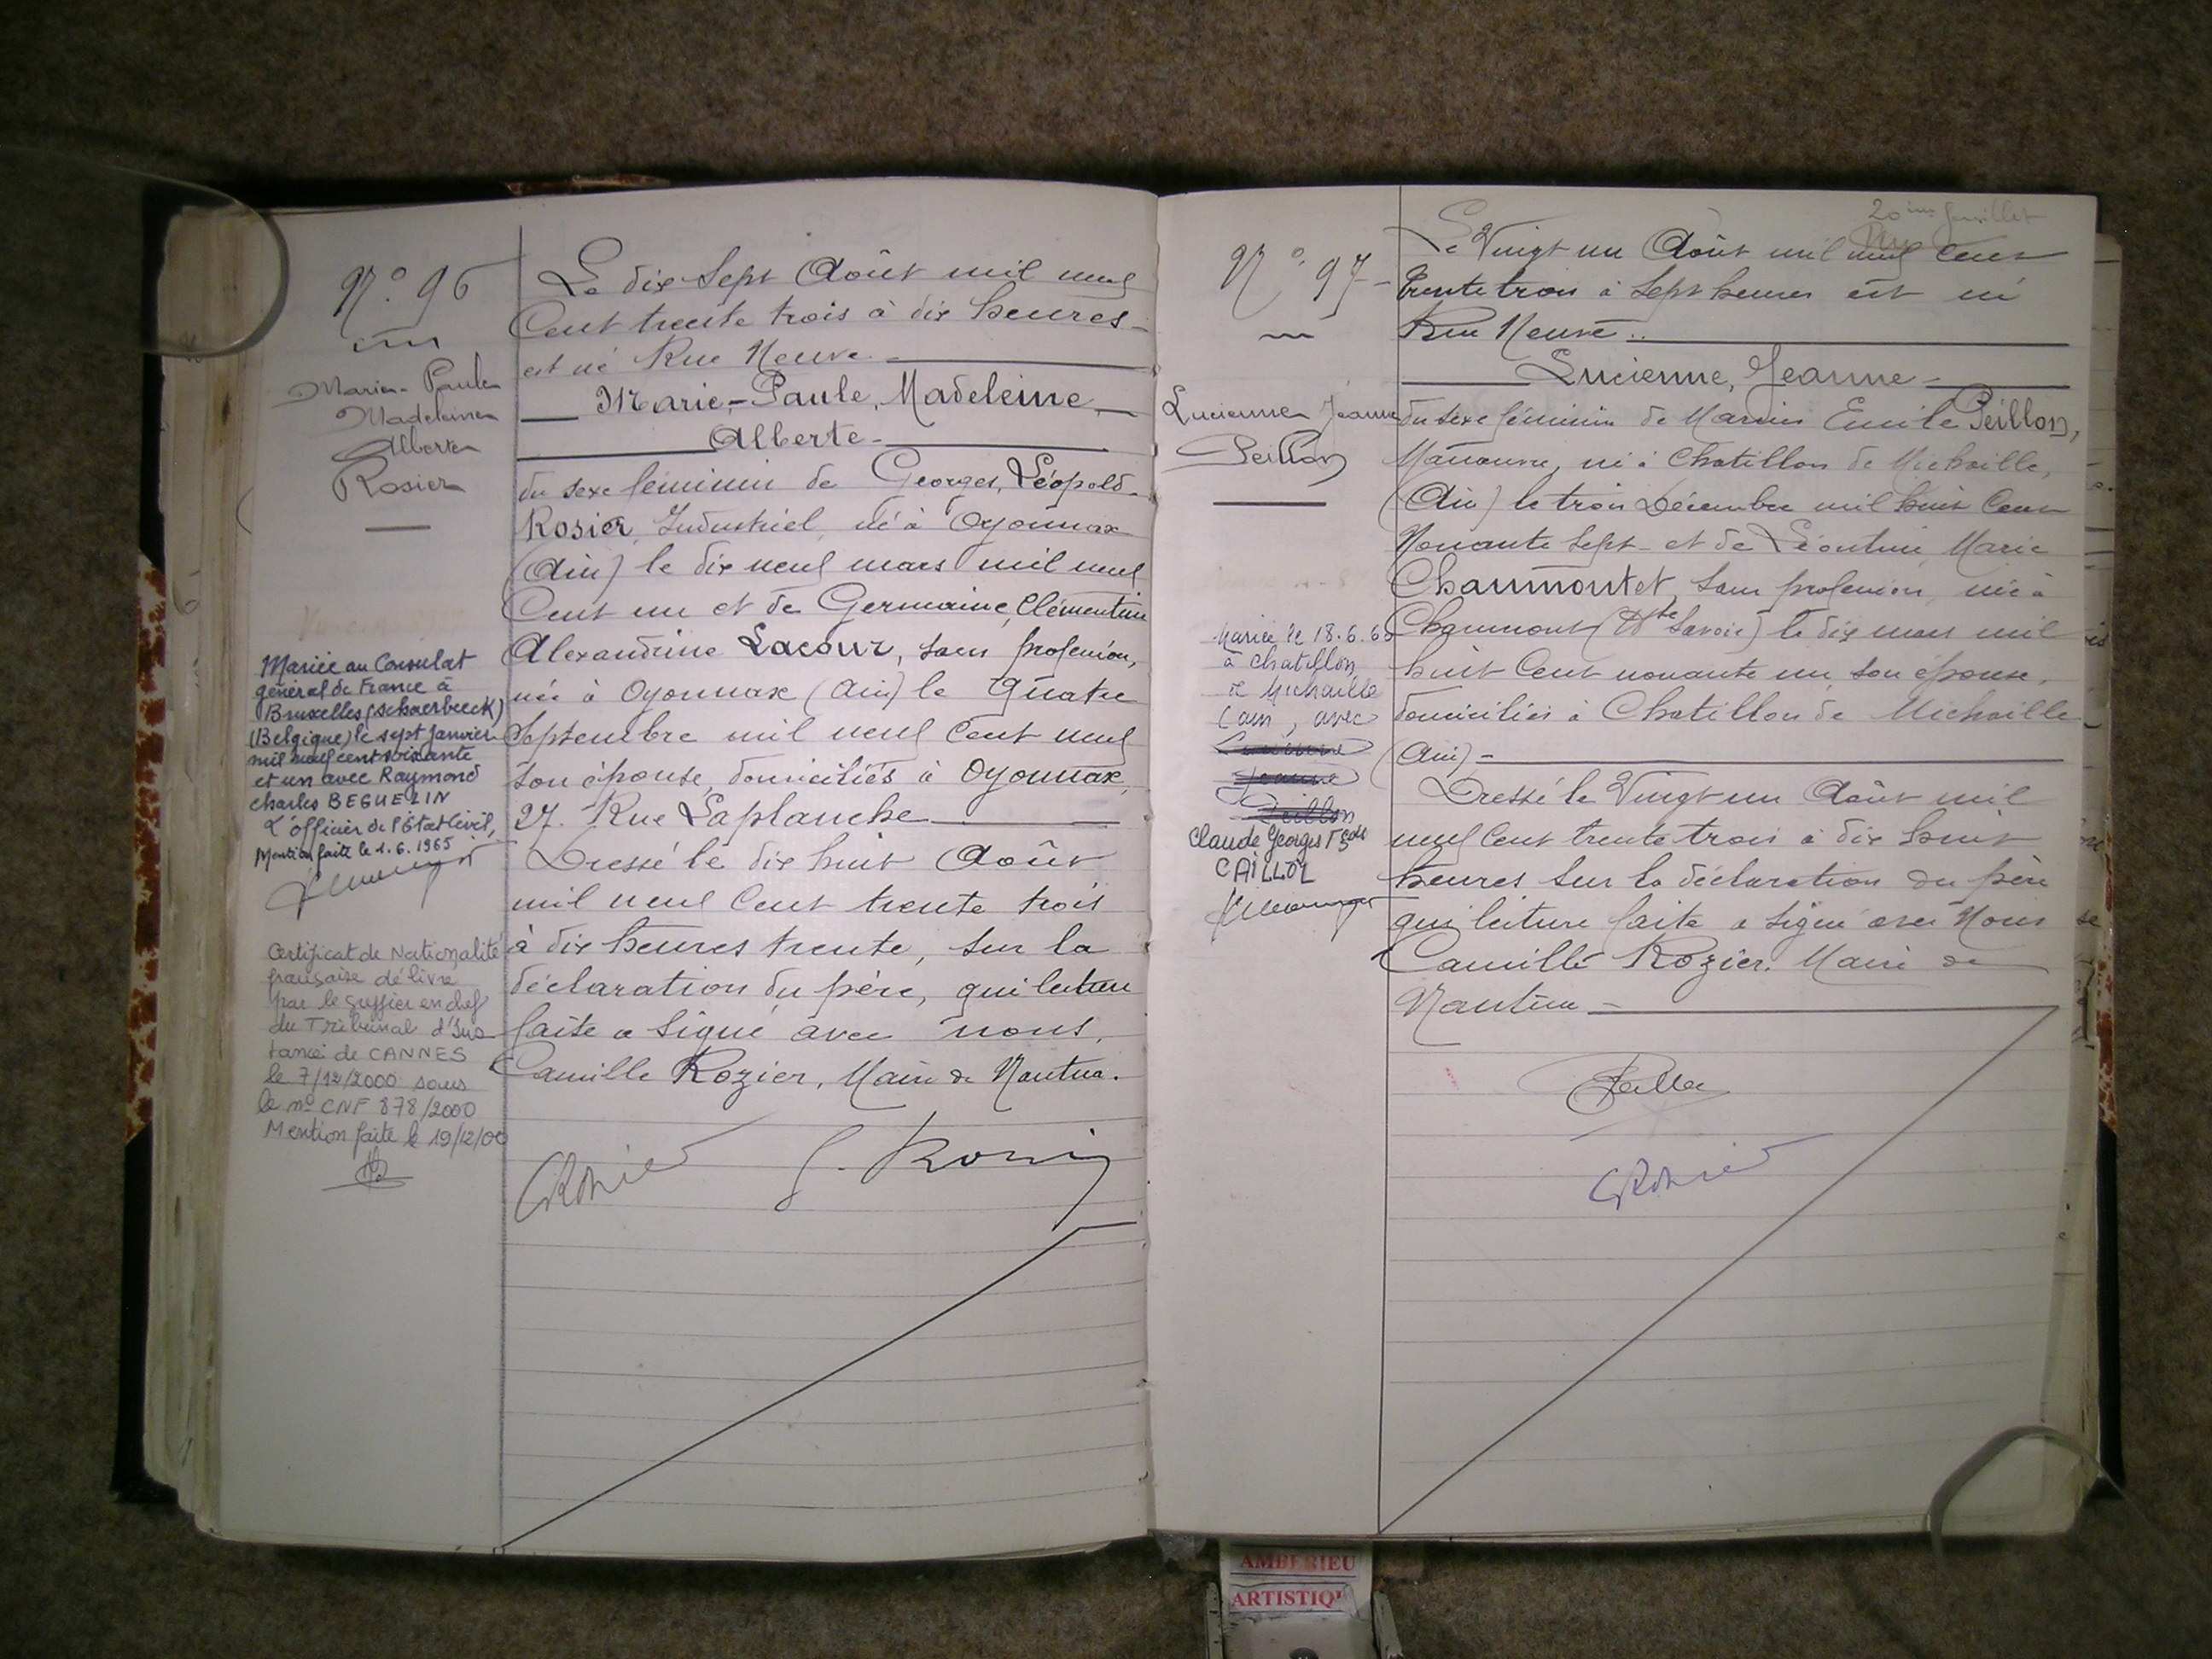 N° 96
Marie-Paule
Madeleine
Alberte
Rosier
Mariée au Consulat
général de France à
Bruxelles (schaerbeeck)
(Belgique) le sept janvier
mil neuf cent soixante
et un avec Raymond
charles BEGUELIN
L'officier de l'Etat Civil,
Mention faite le 1.6.1965
Certificat de Nationalité
française délivré
par le greffier en chef
du Tribunal d'Ins
tance de CANNES
le 7/12/2000 sous
le n° CNF 878/2000
Mention faite le 19/12/00
Le dix Sept Août mil neuf
Cent trente trois à dix heures
est né Rue Neuve
Marie-Paule, Madeleine,
Alberte
du sexe féminin de Georges, Léopold
Rosier, Industriel, né à Oyonnax
(Ain) le dix neuf mars mil neuf
Cent un et de Germaine, Clémentine
Alexandrine Lacour, sans profession,
née à Oyonnax (Ain) le quatre
Septembre mil neuf Cent neuf
son épouse, domiciliés à Oyonnax,
27. Rue Laplanche
Dressé le dix huit Août
mil neuf Cent trente trois
à dix heures trente, sur la
déclaration du père, qui lecture
faite a signé avec nous,
Camille Rozier, Maire de Nantua.
G. Rosier
20 ème feuillet
N° 97
Lucienne Jeanne
Peillon
Mariée le 18.6.6
à Chatillon
de Michaille
(Ain), avec
Lucienne
Jeanne
Peillon
Claude Georges Fçois
CAILLOL
Le Vingt un Août mil neuf Cent
Trente trois à Sept heures est né
Rue Neuve
Lucienne, Jeanne
du sexe féminin de Marius Emile Peillon,
Manœuvre, né à Chatillon de Michaille,
(Ain) le trois Décembre mil huit Cent
Nonante Sept et de Léontine Marie
Chaumontet, sans profession, née à
Chaumont (Hte Savoie) le dix mars mil
huit Cent nonante un, son épouse,
domiciliés à Chatillon de Michaille
(Ain)
Dressé le Vingt un Août mil
neuf Cent trente trois à dix huit
heures sur la déclaration du père
qui lecture faite a signé avec Nous
Camille Rozier. Maire de
Nantua
Peillon
AMBERIEU
ARTISTIQ